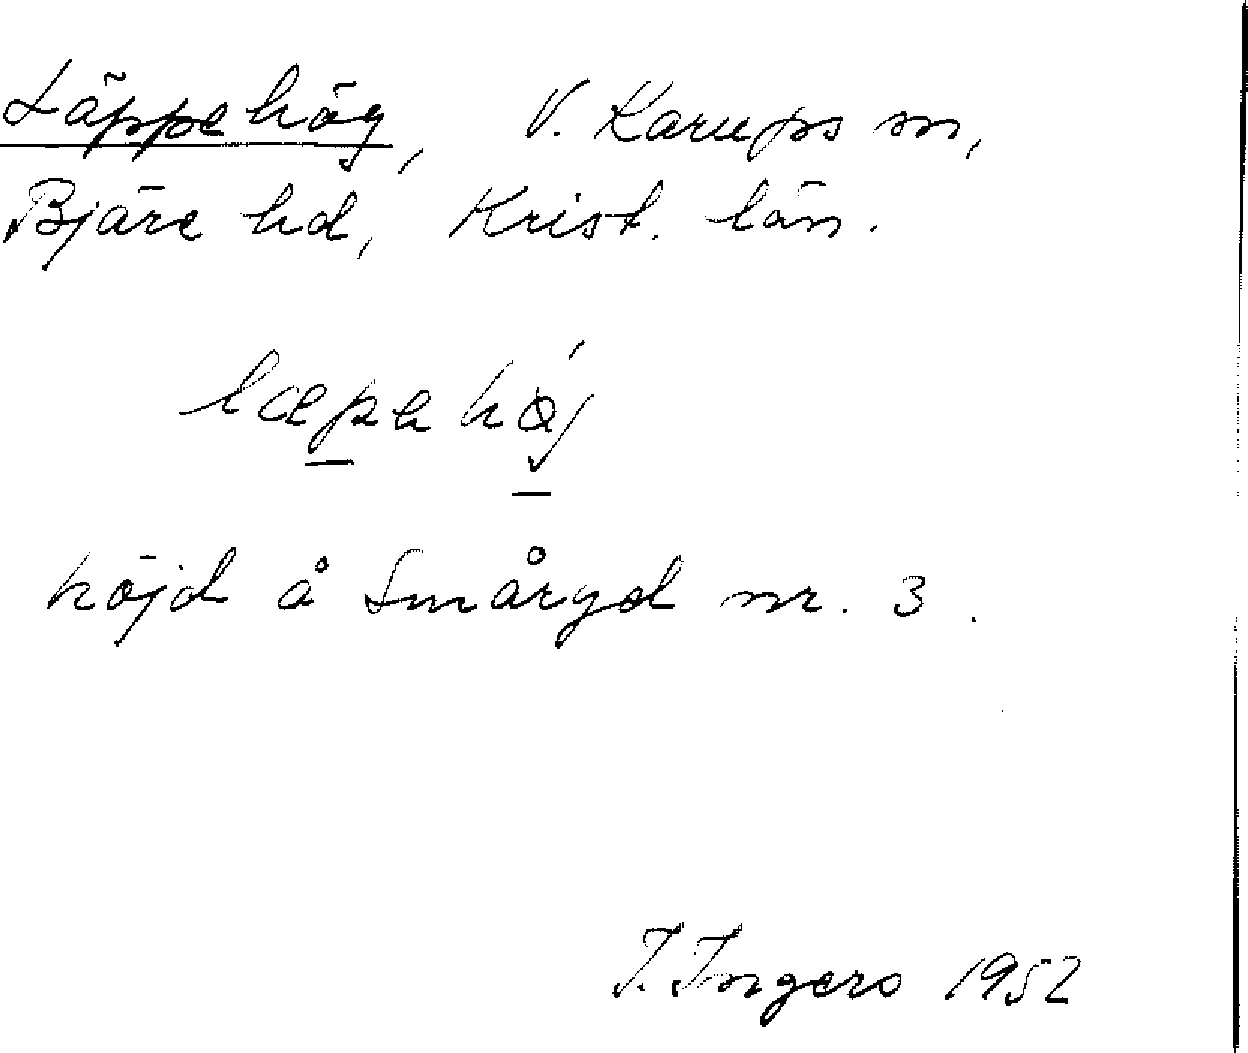 Läppehög, V. Karups sn,
Bjäre hd, Krist. län.
læpahǿj
höjd å Smågryd nr. 3.
I. Ingers 1952